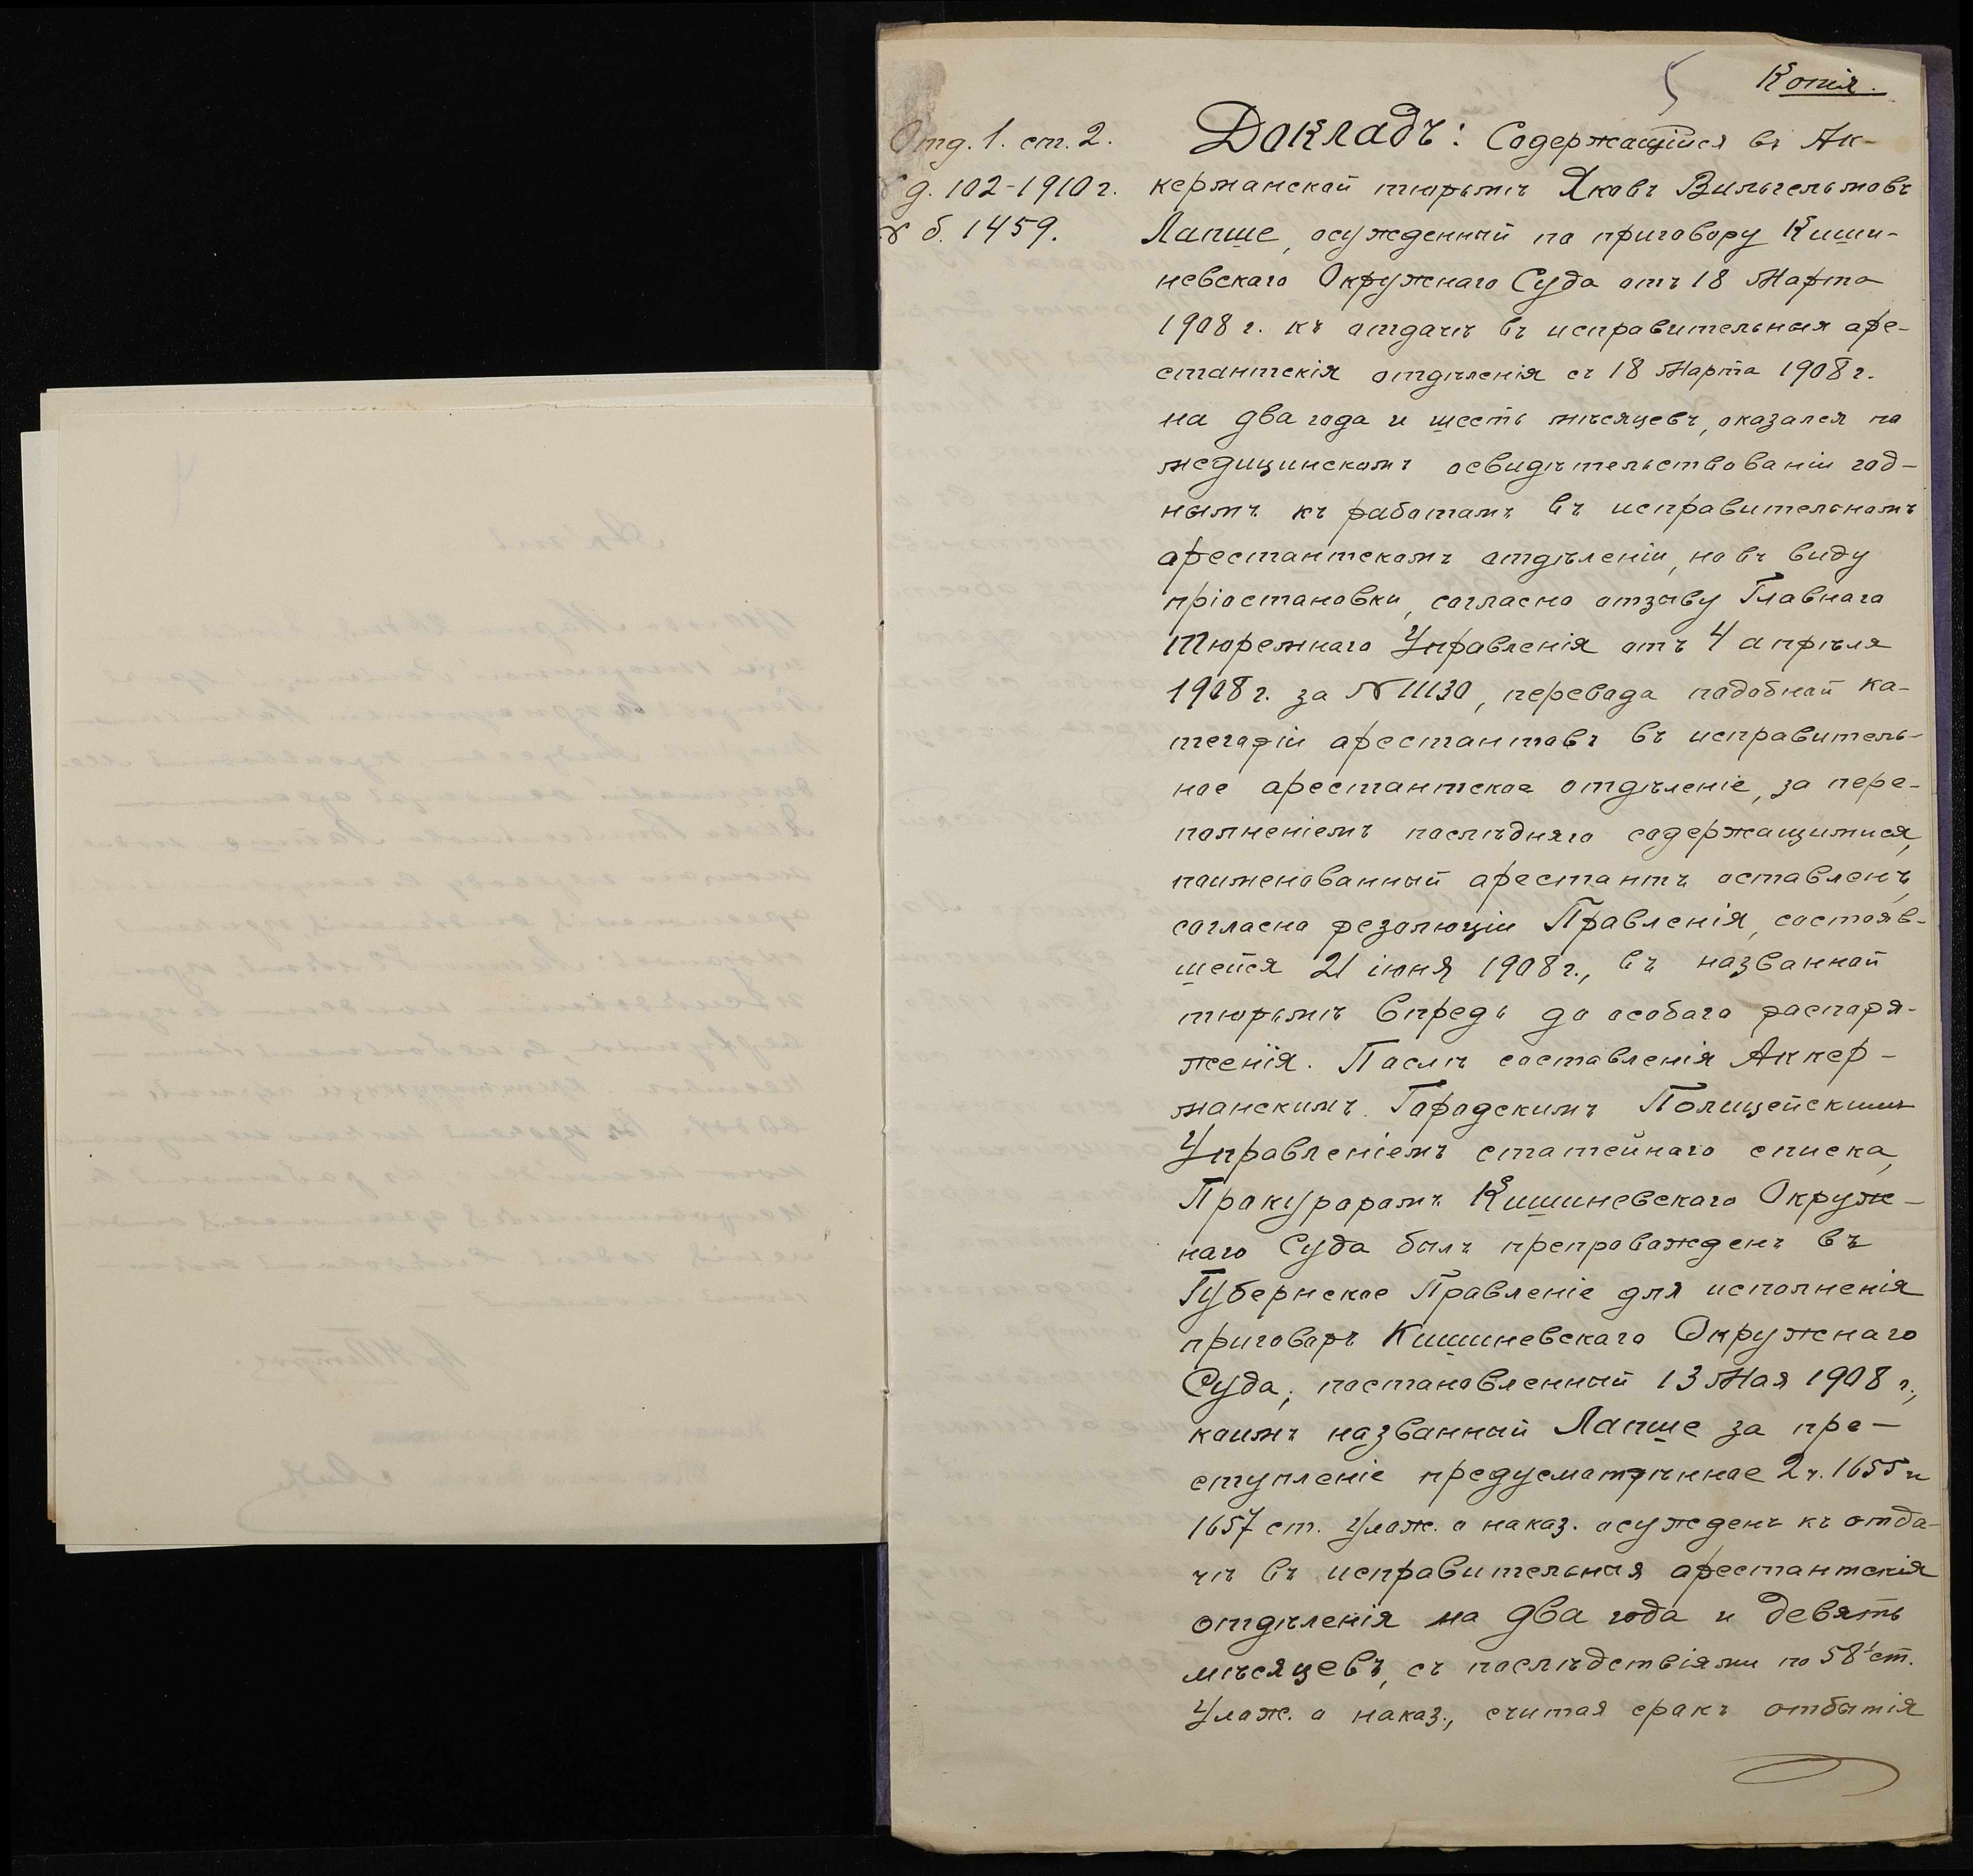 5
Копія.
Отд. 1. ст. 2.
д. 102-1910 г.
№ б. 1459.
Докладъ: Содержащійся въ Ак-
керманской тюрьмѣ Яковъ Вильгельмовъ
Лапше, осужденный по приговору Киши-
невскаго Окружнаго Суда отъ 18 Марта
1908 г. къ отдачѣ въ исправительныя аре-
стантскія отдѣленія съ 18 Марта 1908 г.
на два года и шесть мѣсяцевъ, оказался по
медицинскомъ освидѣтельствованіи год-
нымъ къ работамъ въ исправительномъ
арестантскомъ отдѣленіи, но въ виду
пріостановки, согласно отзыву Главнаго
Тюремнаго Управленія отъ 4 апрѣля
1908 г. за № 11130, перевода подобной ка-
тегоріи арестантовъ въ исправитель-
ное арестантское отдѣленіе, за пере-
полненіемъ послѣдняго содержащимися,
поименованный арестантъ оставленъ,
согласно резолюціи Правленія, состояв-
шейся 21 іюня 1908 г., въ названной
тюрьмѣ впредь до особаго распоря-
женія. Послѣ составленія Аккер-
манскимъ Городскимъ Полицейскимъ
Управленіемъ статейнаго списка,
Прокуроромъ Кишиневскаго Окруж-
наго Суда былъ препровожденъ въ
Губернское Правленіе для исполненія
приговоръ Кишиневскаго Окружнаго
Суда, постановленный 13 Мая 1908 г.,
коимъ названный Лапше за пре-
ступленіе предусмотрѣнное 2 ч. 1655 и
1657 ст. Улож. о наказ. осужденъ къ отда-
чѣ въ исправительныя арестантскія
отдѣленія на два года и девять
мѣсяцевъ, съ послѣдствіями по 58¹ ст.
Улож. о наказ., считая срокъ отбытія